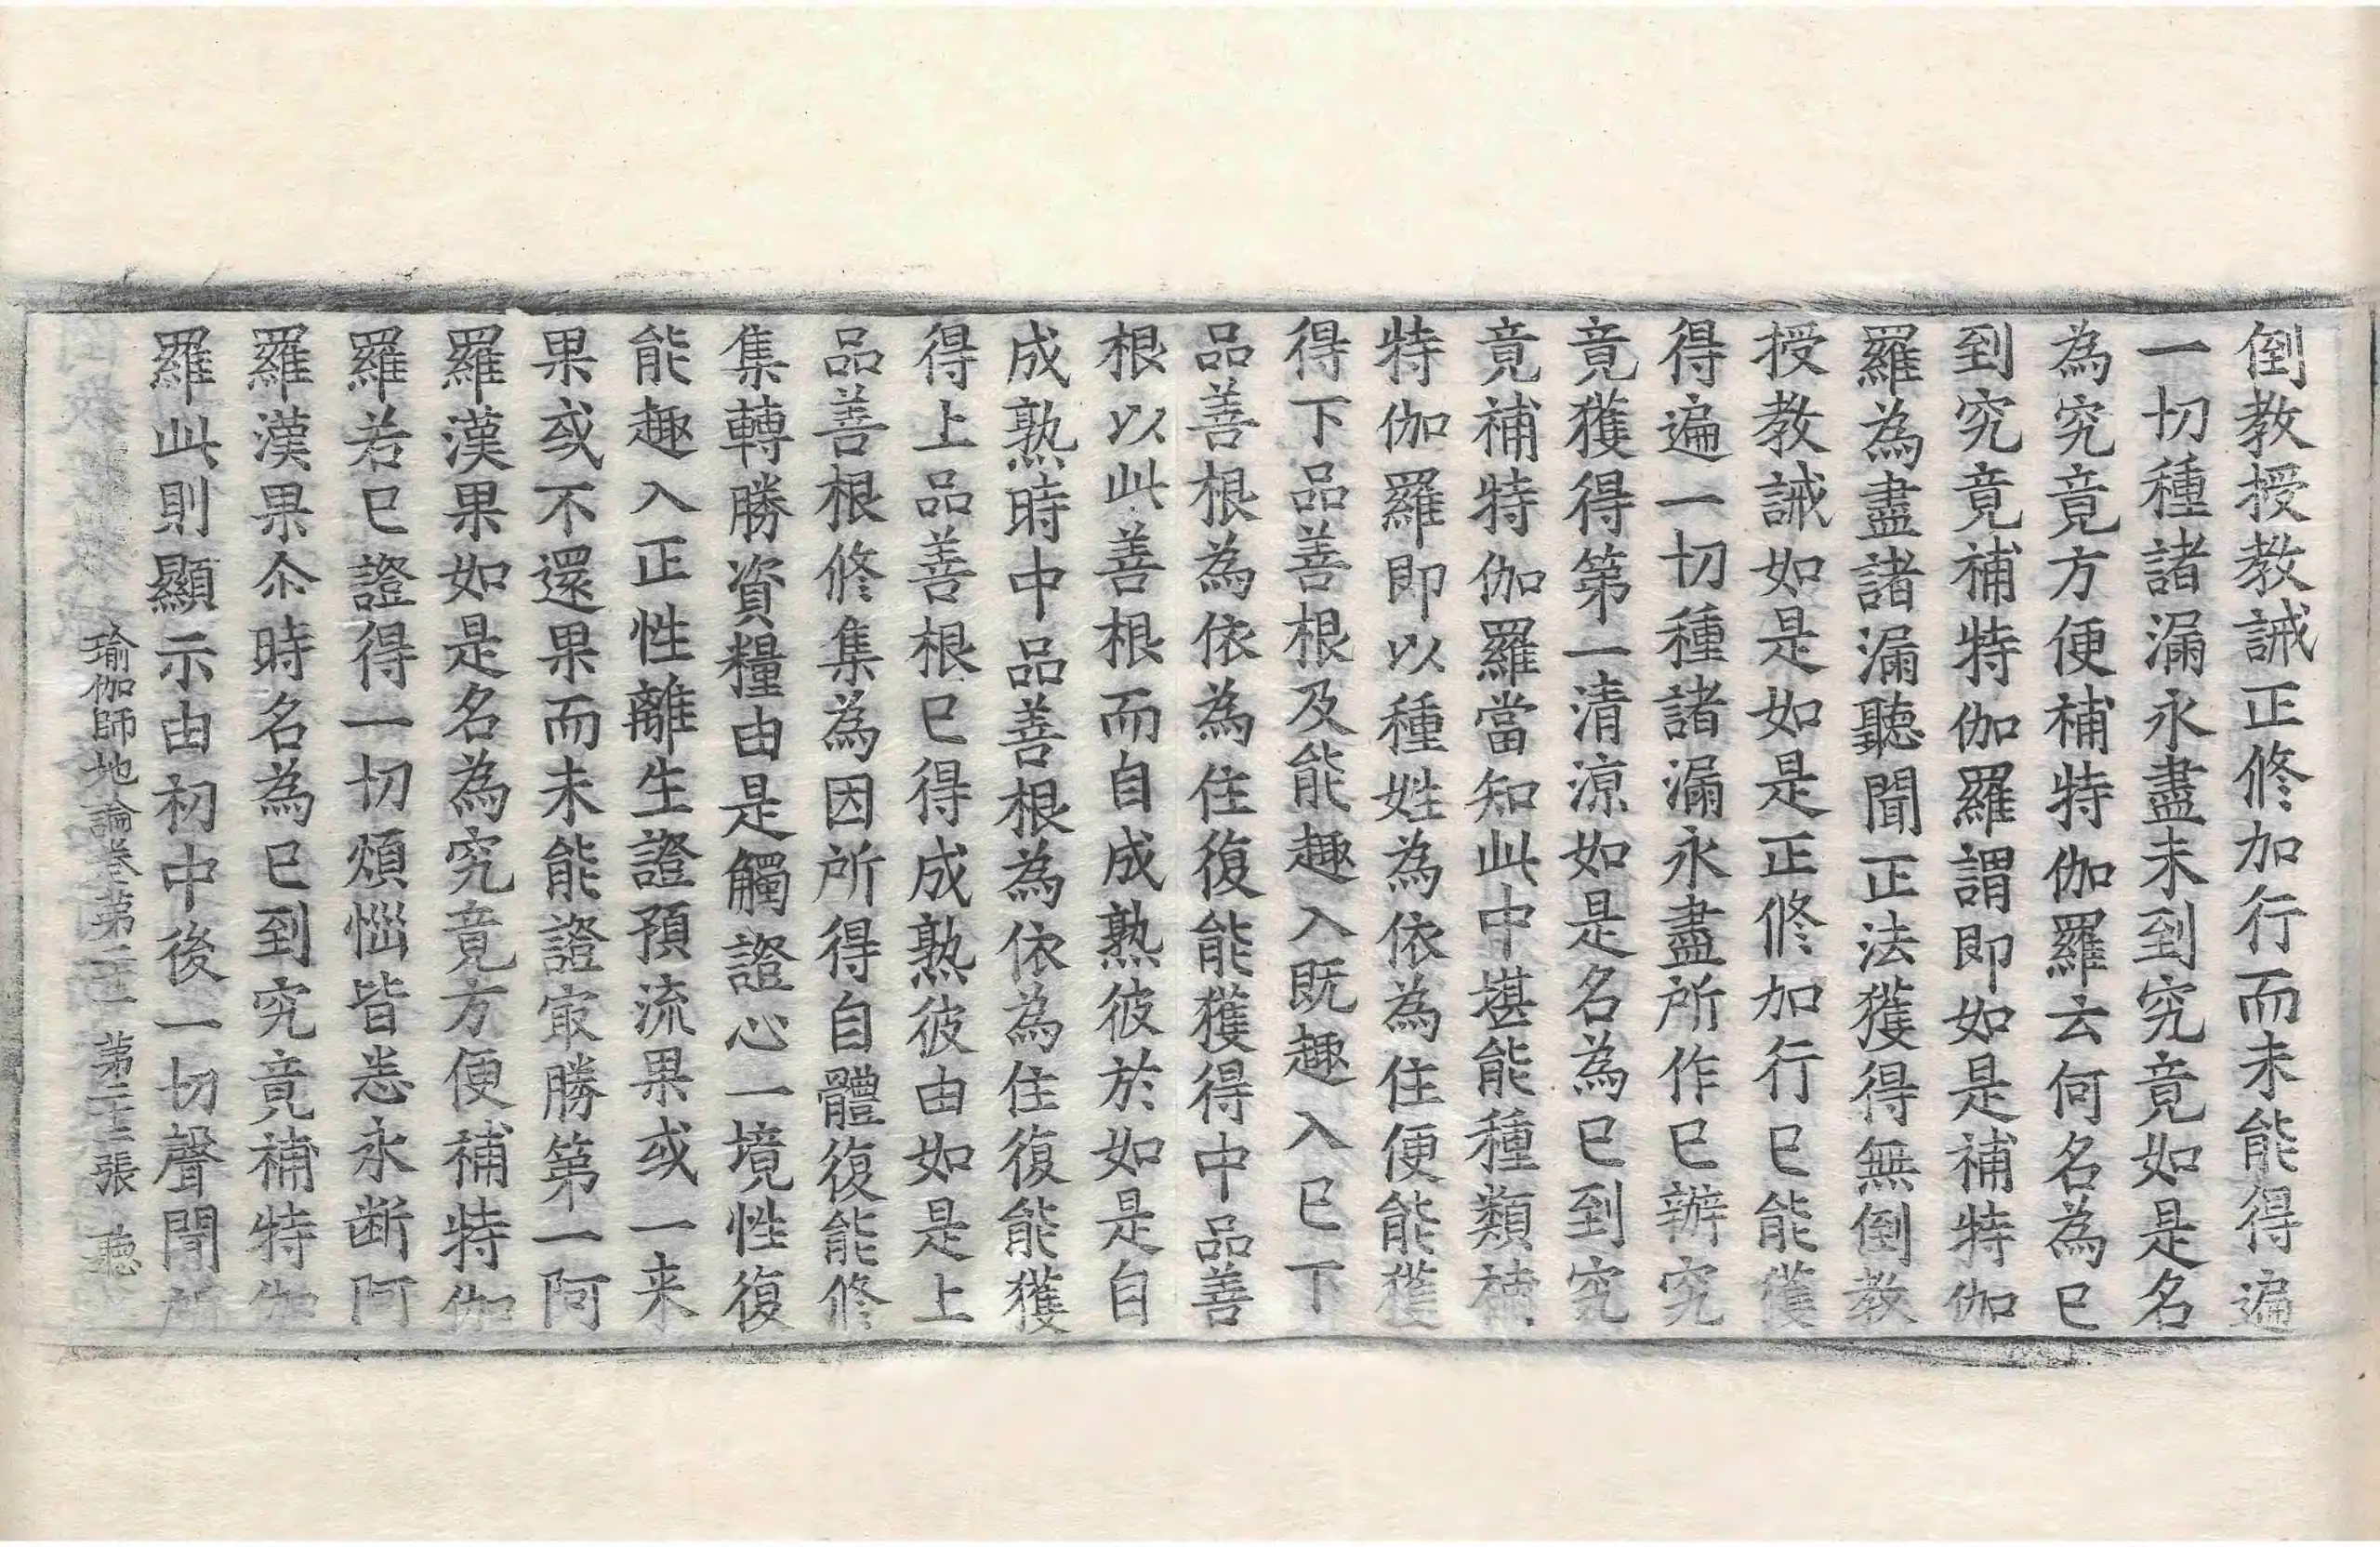 倒教授教誡正修加行而未能得遍
一切種諸漏永盡未到究竟如是名
為究竟方便補特伽羅云何名為已
到究竟補特伽羅謂即如是補特伽
羅為盡諸漏聽聞正法獲得無倒教
授教誡如是如是正修加行已能獲
得遍一切種諸漏永盡所作已辦究
竟獲得第一清涼如是名為已到究
竟補特伽羅當知此中堪能種類補
特伽羅即以種姓為依為住便能獲
得下品善根及能趣入既趣入已下
品善根為依為住復能獲得中品善
根以此善根而自成熟彼於如是自
成熟時中品善根為依為住復能獲
得上品善根已得成熟彼由如是上
品善根修集為因所得自體復能修
集轉勝資糧由是觸證心一境性復
能趣入正性離生證預流果或一来
果或不還果而未能證㝡勝第一阿
羅漢果如是名為究竟方便補特伽
羅若已證得一切煩惱皆悉永断阿
羅漢果尒時名為已到究竟補特伽
羅此則顯示由初中後一切聲聞所
瑜伽師地論卷第二十一 第二十三張 聽